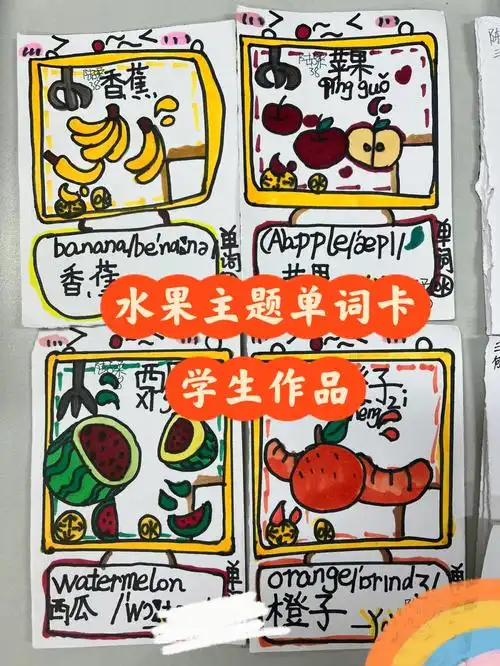 香蕉
苹果
píng guǒ
banana/be'nɑːnə/
香蕉
单词
(A)apple/'æpl/
苹果
单词
水
水果主题单词卡
学生作品
西
子
zi
水
水
watermelon
西瓜
单
orange/'ɒrɪndʒ/
橙子
单词